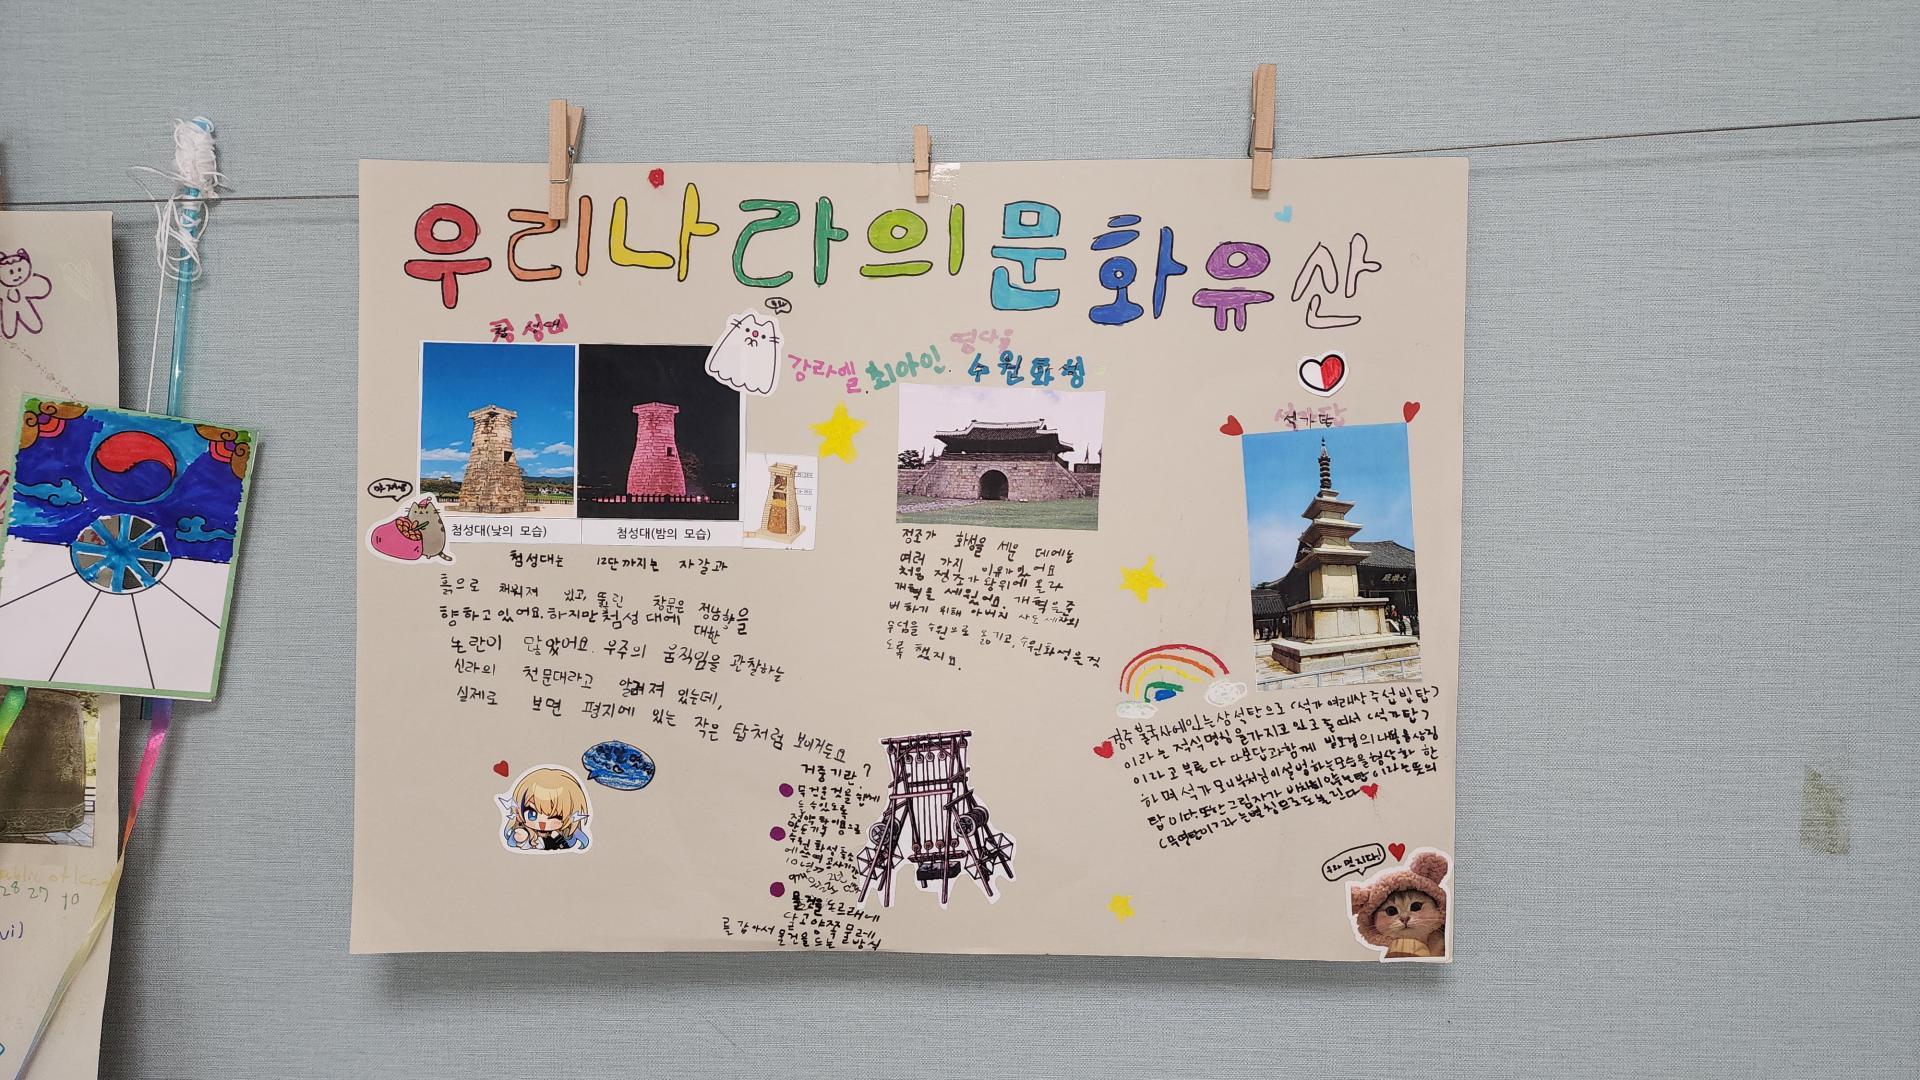 우리나라의 문화유산
첨성대
우와
강라엘 최아인
영다윤
수원화성
석가탑
아 겨워
첨성대(낮의 모습)
첨성대(밤의 모습)
첨성대는 12단까지는 자갈과
흙으로 채워져 있고, 뚫린 창문은 정남향을
향하고 있어요. 하지만 첨성대에 대한
논란이 많았어요. 우주의 움직임을 관찰하는
신라의 천문대라고 알려져 있는데,
실제로 보면 평지에 있는 작은 탑처럼 보이거든요
정조가 화성을 세운 데에는
여러 가지 이유가 있어요
처음 정조가 왕위에 올라
개혁을 세웠어요. 개혁을 준
비하기 위해 아버지 사도세자의
무덤을 수원으로 옮기고, 수원화성을 짓
도록 했지요.
경주 불국사에 있는 삼석탄으로 (석가여래상주설법탑)
이라는 정식명칭을 가지고 있고 줄여서 (석가탑)
이라고 부른다 다보탑과 함께 법화경의 내용을 상징
하며 석가모니 부처님이 설법하는 모습을 형상화 한
탑이다. 또한 그림자가 비치지 않는 탑 이라는 뜻의
(무영탑이)라는 별칭으로도 불린다
거중기란?
무거운 것을 쉽게
들 수 있도록
정약용이
만든 기구
수원 화성 축소
에 쓰여 공사기간
10년
2년
물건을 도르래에
달고 양쪽 물레
를 감아서 물건을 드는 방식
우와 멋지다!
大雄殿
28 27 10